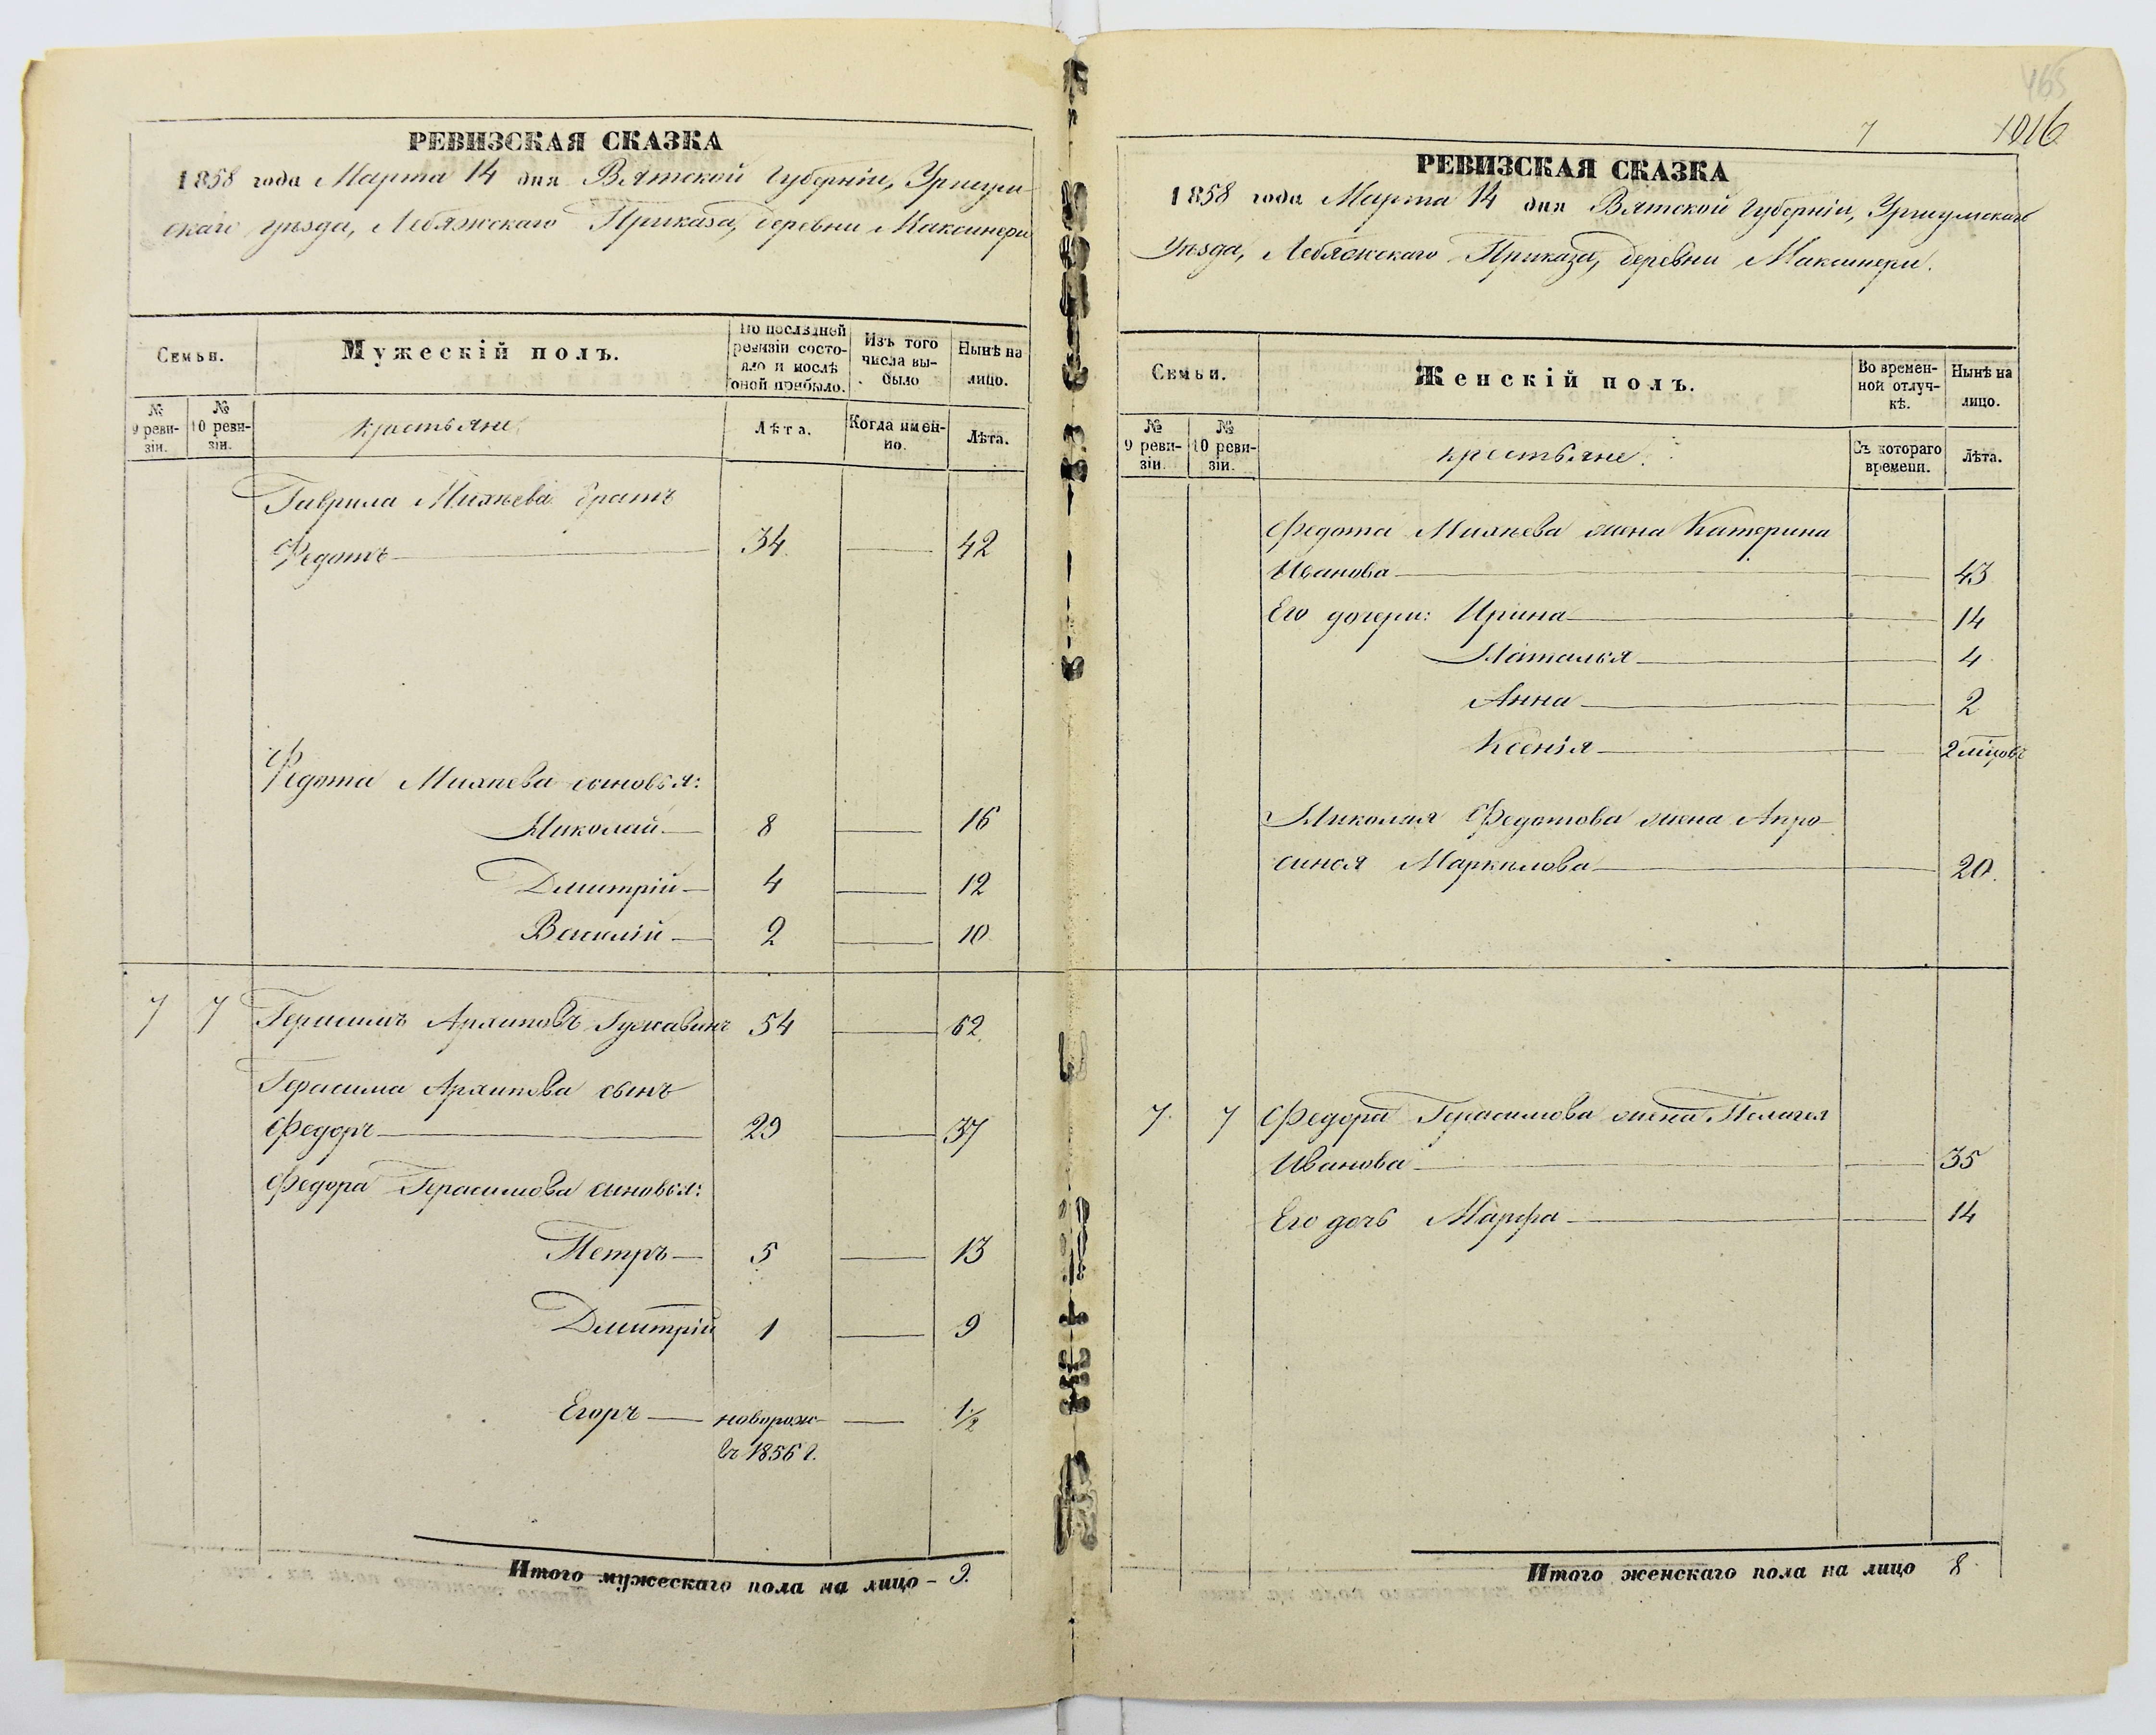 РЕВИЗСКАЯ СКАЗКА
1858 года Марта 14 дня Вятской Губерніи, Уржум-
скаго уѣзда, Лебяжскаго Приказа, деревни Максинери
Семьи.
Мужескій полъ.
По послѣдней
ревизіи состо-
яло и послѣ
оной прибыло.
Изъ того
числа вы-
было
Ныне на
лицо.
№
9 реви-
зіи.
№
10 реви-
зіи.
крестьяне
Лѣта.
Когда имен-
но.
Лѣта.
Гаврила Михѣева братъ
Федотъ 34 42
Федота Михѣева сыновья:
Николай 8 16
Дмитрій 4 12
Василій 2 10
7 7 Герасимъ Архиповъ Гужавинъ 54 62
Герасима Архипова сынъ
Федоръ 29 37
Федора Герасимова сыновья:
Петръ 5 13
Дмитрій 1 9
Егоръ новорож- 1/2
въ 1856 г.
Итого мужескаго пола на лицо - 9.
465
7 1016
РЕВИЗСКАЯ СКАЗКА
1858 года Марта 14 дня Вятской Губерніи, Уржумскаго
Уѣзда, Лебяжскаго Приказа, деревни Максинери.
Семьи.
Женскій полъ.
Во времен-
ной отлуч-
кѣ.
Нынѣ на
лицо.
№
9 реви-
зіи.
№
10 реви-
зіи.
крестьяне.
Съ котораго
времени.
Лѣта.
Федота Михѣева жена Катерина
Иванова 43
Его дочери: Ирина 14
Наталья 4
Анна 2
Ксенія 2 мѣсяцовъ
Николая Федотова жена Апро-
синья Маркелова 20.
7. 7 Федора Герасимова жена Пелагея
Иванова 35
Его дочь Марфа 14
Итого женскаго пола на лицо 8